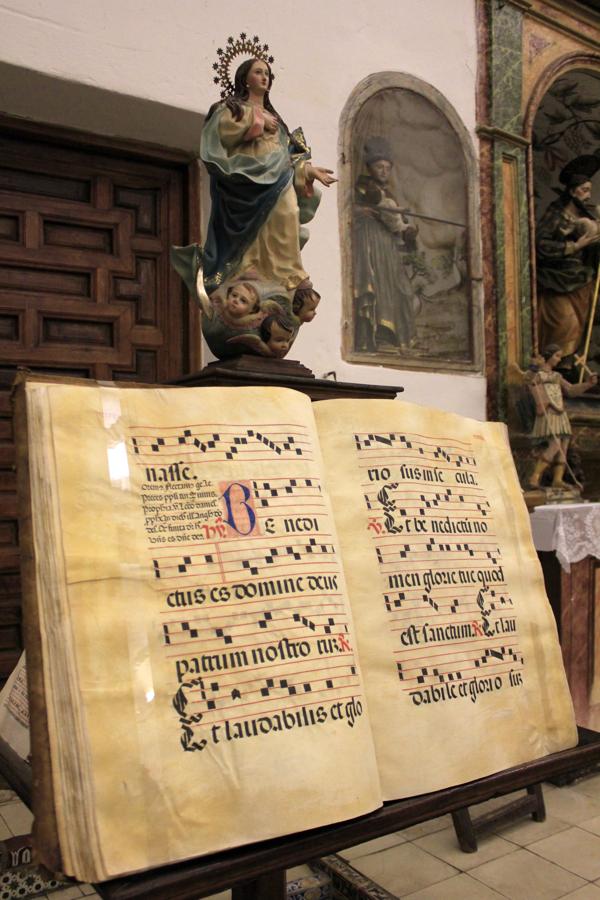 nasse.
Preces
B e nedi
ctus es domine deus
patrum nostro rum. ℟.
Et laudabilis et glo
rio sus in se cula.
℟. Et be nedictũ no
men glorie tue quod
est sanctum. ℟. Et lau
dabi le et glori o suz